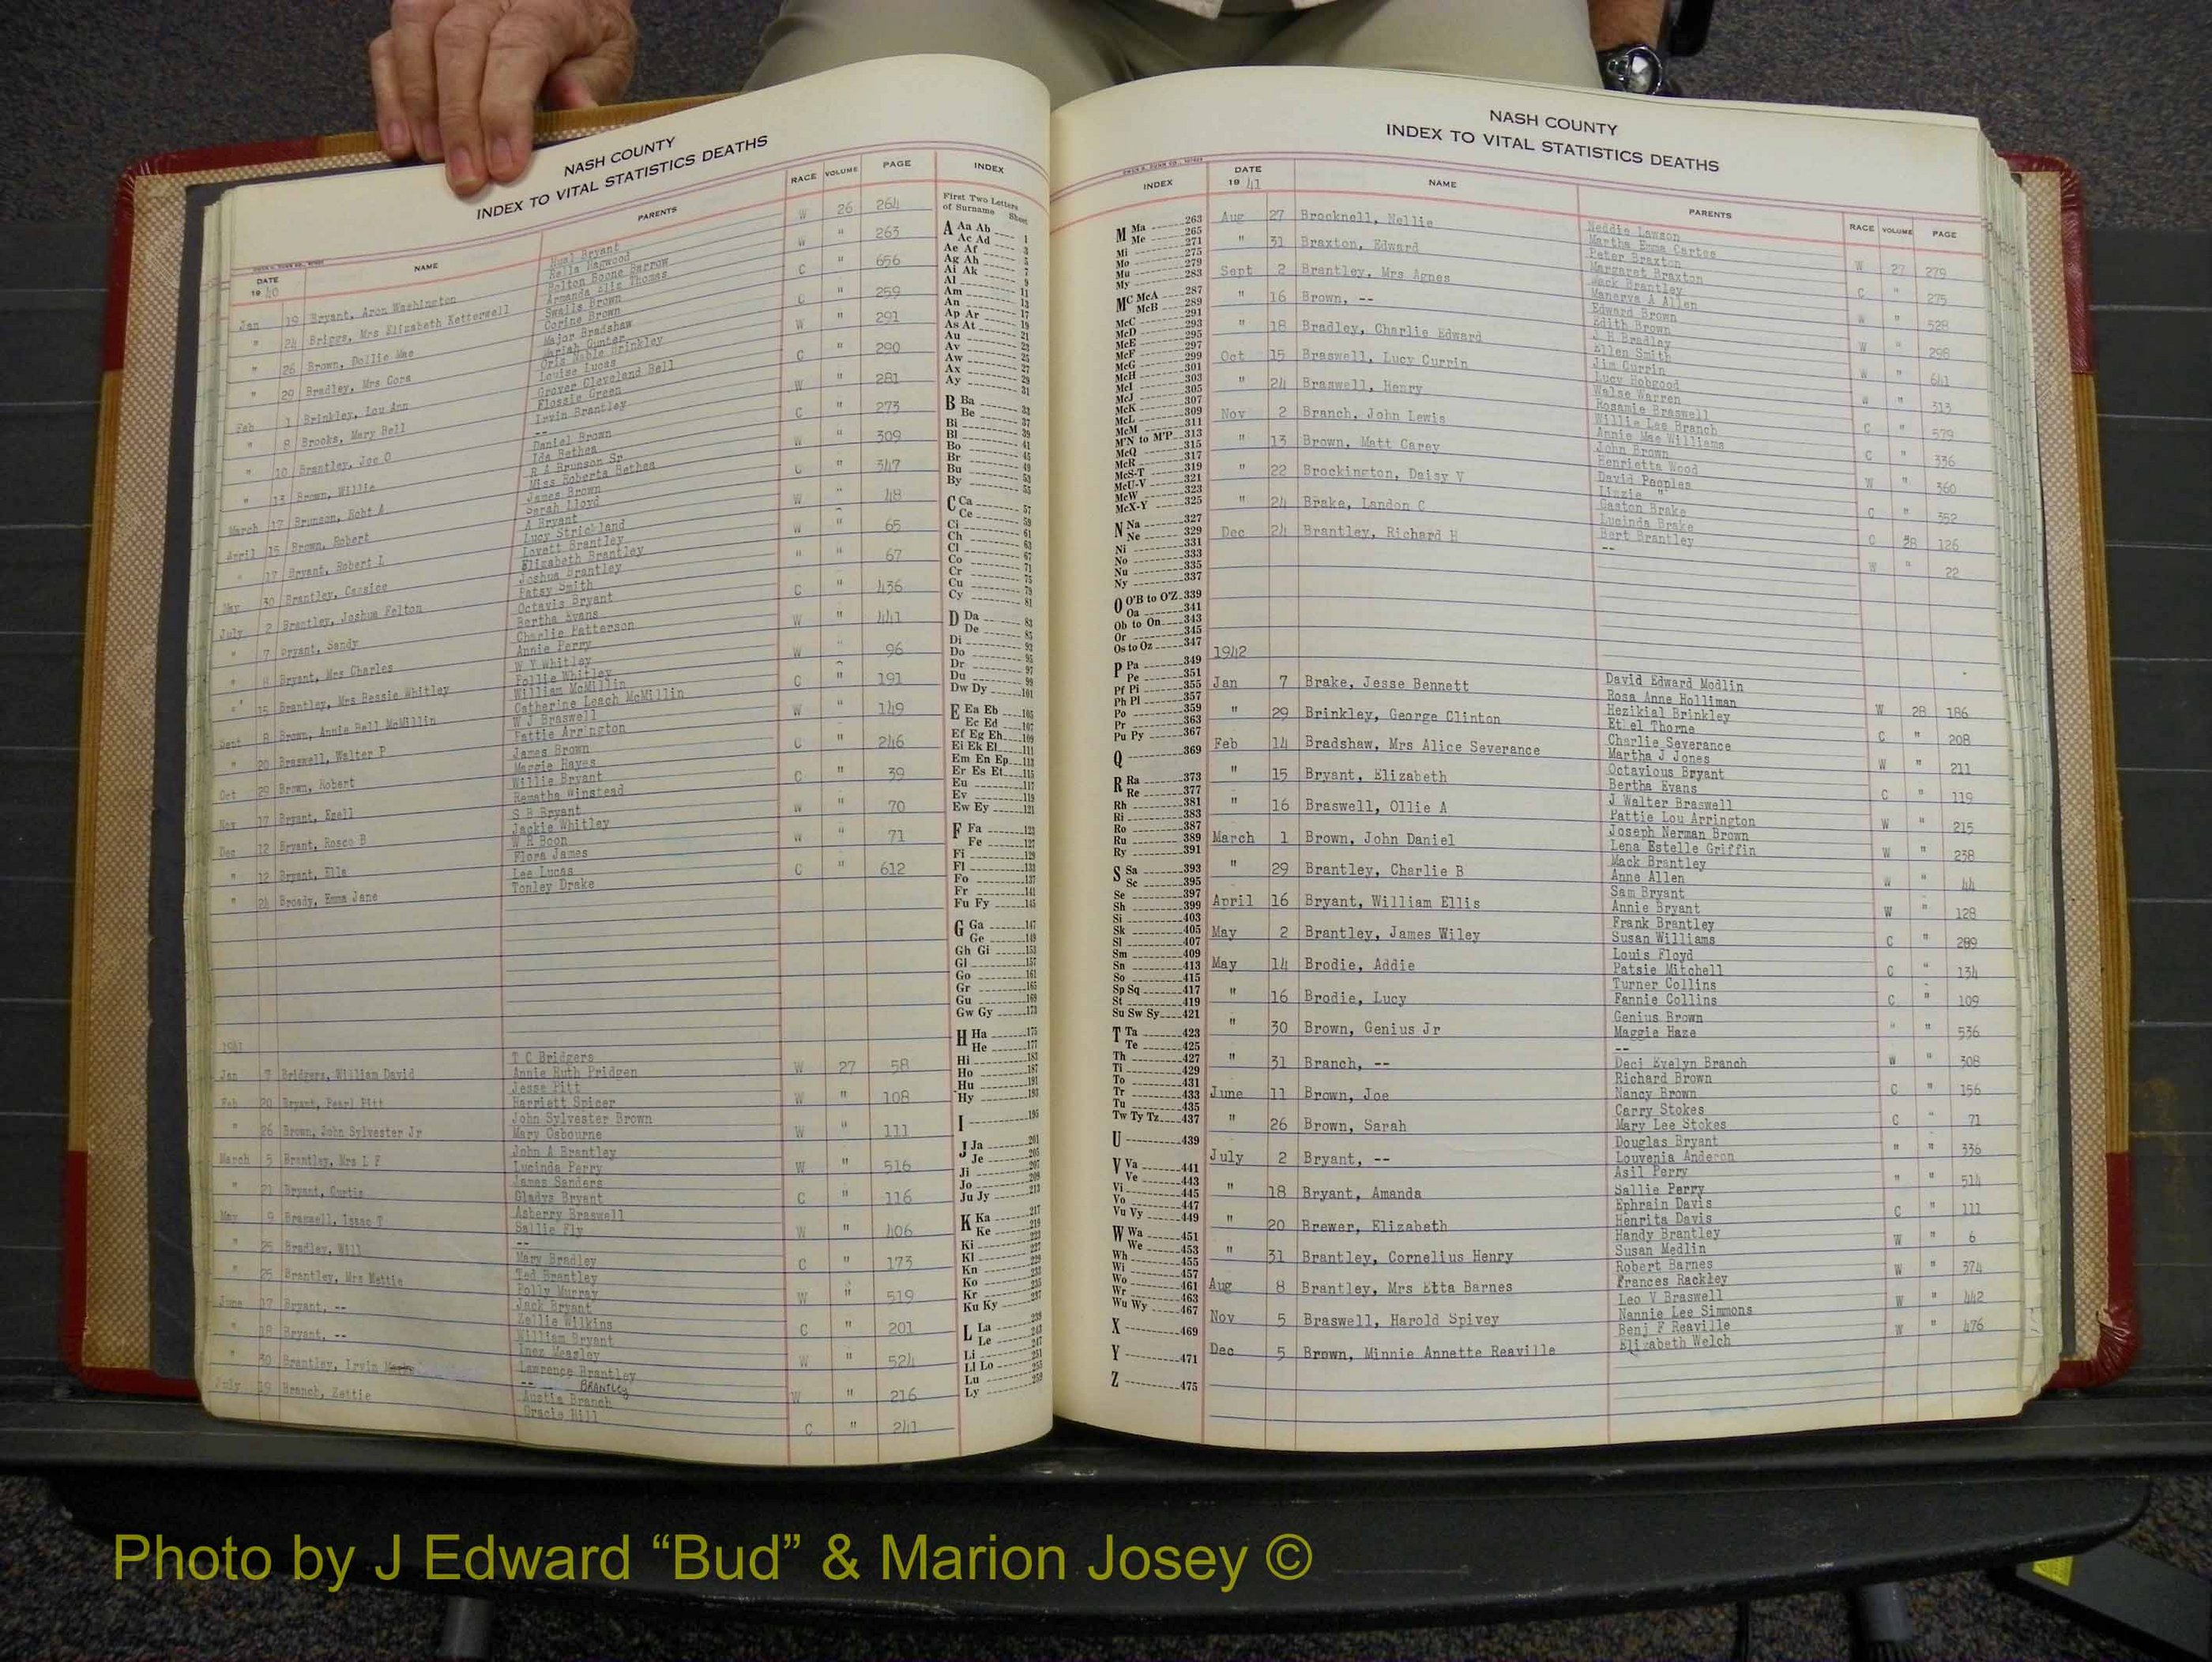 NASH COUNTY
INDEX TO VITAL STATISTICS DEATHS
DATE
19 40
NAME
PARENTS
RACE
VOLUME
PAGE
INDEX
Jan 19 Bryant, Aron Washington
" 24 Briggs, Mrs Elizabeth Ketterwell
" 26 Brown, Dollie Mae
" 29 Bradley, Mrs Cora
Feb 1 Brinkley, Lou Ann
" 8 Brooks, Mary Bell
" 10 Brantley, Joe O
" 13 Brown, Willie
March 17 Brunson, Robt A
April 15 Brown, Robert
" 17 Bryant, Robert L
May 30 Brantley, Cassice
July 2 Brantley, Joshua Felton
" 7 Bryant, Sandy
" 8 Bryant, Mrs Charles
" 15 Brantley, Mrs Bessie Whitley
Sept 8 Brown, Annie Bell McMillin
" 20 Braswell, Walter P
Oct 29 Brown, Robert
Nov 17 Bryant, Exell
Dec 12 Bryant, Rosco B
" 12 Bryant, Ella
" 24 Broady, Emma Jane
Bolton Boone Barrow
Swails Brown
Corine Brown
Major Bradshaw
Mariah Gunter
Oris Noble Brinkley
Louise Lucas
Grover Cleveland Bell
Flossie Green
Irvin Brantley
--
Daniel Brown
Ida Bethea
R A Brunson Sr
Miss Roberta Bethea
James Brown
Sarah Lloyd
A Bryant
Lucy Strickland
Lovett Brantley
Elizabeth Brantley
Joshua Brantley
Patsy Smith
Octavis Bryant
Bertha Evans
Charlie Patterson
Annie Perry
W Y Whitley
Pollie Whitley
William McMillin
Catherine Leach McMillin
W J Braswell
Pattie Arrington
James Brown
Maggie Hayes
Willie Bryant
Rematha Winstead
S B Bryant
Jackie Whitley
W R Boon
Flora James
Lee Lucas
Tonley Drake
W 26 264
W " 263
C " 656
C " 259
W " 291
C " 290
W " 281
C " 273
W " 309
C " 347
W " 48
W " 65
" " 67
C " 436
W " 441
W " 96
C " 191
W " 149
C " 246
C " 39
W " 70
W " 71
C " 612
1941
Jan 7 Bridgers, William David
Feb 20 Bryant, Pearl Pitt
" 26 Brown, John Sylvester Jr
March 5 Brantley, Mrs L F
" 21 Bryant, Curtis
May 9 Braswell, Isaac T
" 25 Bradley, Will
" 25 Brantley, Mrs Mettie
June 17 Bryant, --
" 18 Bryant, --
" 30 Brantley, Irvin
July 19 Branch, Zettie
T C Bridgers
Annie Ruth Pridgen
Jesse Pitt
Harriett Spicer
John Sylvester Brown
Mary Osbourne
John A Brantley
Lucinda Perry
James Sanders
Gladys Bryant
Asberry Braswell
Sallie Fly
--
Mary Bradley
Ted Brantley
Polly Murray
Jack Bryant
Zollie Wilkins
William Bryant
Inez Measley
Lawrence Brantley
-- BRANTLEY
Austin Branch
Gracie Hill
W 27 58
W " 108
W " 111
W " 516
C " 116
W " 406
C " 173
W " 519
C " 201
W " 524
W " 216
C " 241
First Two Letters
of Surname Sheet
A Aa Ab 1
Ac Ad 3
Ae Af 5
Ag Ah 7
Ai Ak 9
Al 11
Am 13
An 17
Ap Ar 19
As At 21
Au 23
Av 25
Aw 27
Ax 29
Ay 31
B Ba 33
Be 37
Bi 39
Bl 41
Bo 45
Br 49
Bu 53
By 55
C Ca 57
Ce 59
Ci 61
Ch 63
Cl 67
Co 71
Cr 75
Cu 79
Cy 81
D Da 83
De 85
Di 93
Do 95
Dr 97
Du 99
Dw Dy 101
E Ea Eb 105
Ec Ed 107
Ef Eg Eh 109
Ei Ek El 111
Em En Ep 113
Er Es Et 115
Eu 117
Ev 119
Ew Ey 121
F Fa 123
Fe 127
Fi 129
Fl 133
Fo 137
Fr 141
Fu Fy 145
G Ga 147
Ge 149
Gh Gi 153
Gl 157
Go 161
Gr 165
Gu 169
Gw Gy 173
H Ha 175
He 177
Hi 183
Ho 187
Hu 191
Hy 193
I 195
J Ja 201
Je 205
Ji 207
Jo 209
Ju Jy 213
K Ka 217
Ke 219
Ki 223
Kl 227
Kn 229
Ko 233
Kr 235
Ku Ky 237
L La 239
Le 243
Li 251
Ll Lo 253
Lu 255
Ly 259
NASH COUNTY
INDEX TO VITAL STATISTICS DEATHS
INDEX
DATE
19 41
NAME
PARENTS
RACE
VOLUME
PAGE
M Ma 263
Me 265
Mi 271
Mo 275
Mu 279
My 283
Mc McA 287
McB 289
McC 291
McD 293
McE 295
McF 297
McG 299
McH 301
McI 303
McJ 305
McK 307
McL 309
McM 311
M'N to M'P 313
McQ 315
McR 317
McS-T 319
McU-V 321
McW 323
McX-Y 325
N Na 327
Ne 329
Ni 331
No 333
Nu 335
Ny 337
O O'B to O'Z 339
Oa 341
Ob to On 343
Or 345
Os to Oz 347
P Pa 349
Pe 351
Pf Pi 355
Ph Pl 357
Po 359
Pr 363
Pu Py 367
Q 369
R Ra 373
Re 377
Rh 381
Ri 383
Ro 387
Ru 389
Ry 391
S Sa 393
Sc 395
Se 397
Sh 399
Si 403
Sk 405
Sl 407
Sm 409
Sn 413
So 415
Sp Sq 417
St 419
Su Sw Sy 421
T Ta 423
Te 425
Th 427
Ti 429
To 431
Tr 433
Tu 435
Tw Ty Tz 437
U 439
V Va 441
Ve 443
Vi 445
Vo 447
Vu Vy 449
W Wa 451
We 453
Wh 455
Wi 457
Wo 461
Wr 463
Wu Wy 467
X 469
Y 471
Z 475
Aug 27 Brocknell, Nellie
" 31 Braxton, Edward
Sept 2 Brantley, Mrs Agnes
" 16 Brown, --
" 18 Bradley, Charlie Edward
Oct 15 Braswell, Lucy Currin
" 24 Braswell, Henry
Nov 2 Branch, John Lewis
" 13 Brown, Matt Carey
" 22 Brockington, Daisy V
" 24 Brake, Landon C
Dec 24 Brantley, Richard H
Neddie Lawson
Martha Emma Cartes
Peter Braxton
Margaret Braxton
Mack Brantley
Manerva A Allen
Edward Brown
Edith Brown
J H Bradley
Ellen Smith
Jim Currin
Lucy Hobgood
Walse Warren
Rosamie Braswell
Willie Lee Branch
Annie Mae Williams
John Brown
Henrietta Wood
David Peoples
Lizzie "
Gaston Brake
Lucinda Brake
Bert Brantley
--
W 27 279
C " 275
W " 528
W " 298
W " 641
W " 313
C " 579
C " 336
W " 360
C " 352
C 28 126
W " 22
1942
Jan 7 Brake, Jesse Bennett
" 29 Brinkley, George Clinton
Feb 14 Bradshaw, Mrs Alice Severance
" 15 Bryant, Elizabeth
" 16 Braswell, Ollie A
March 1 Brown, John Daniel
" 29 Brantley, Charlie B
April 16 Bryant, William Ellis
May 2 Brantley, James Wiley
May 14 Brodie, Addie
" 16 Brodie, Lucy
" 30 Brown, Genius Jr
" 31 Branch, --
June 11 Brown, Joe
" 26 Brown, Sarah
July 2 Bryant, --
" 18 Bryant, Amanda
" 20 Brewer, Elizabeth
" 31 Brantley, Cornelius Henry
Aug 8 Brantley, Mrs Etta Barnes
Nov 5 Braswell, Harold Spivey
Dec 5 Brown, Minnie Annette Reaville
David Edward Modlin
Rosa Anne Holliman
Hezikial Brinkley
Ethel Thorne
Charlie Severance
Martha J Jones
Octavious Bryant
Bertha Evans
J Walter Braswell
Pattie Lou Arrington
Joseph Nerman Brown
Lena Estelle Griffin
Mack Brantley
Anne Allen
Sam Bryant
Annie Bryant
Frank Brantley
Susan Williams
Louis Floyd
Patsie Mitchell
Turner Collins
Fannie Collins
Genius Brown
Maggie Haze
--
Deci Evelyn Branch
Richard Brown
Nancy Brown
Carry Stokes
Mary Lee Stokes
Douglas Bryant
Louvenia Anderon
Asil Perry
Sallie Perry
Ephrain Davis
Henrita Davis
Handy Brantley
Susan Medlin
Robert Barnes
Frances Rackley
Leo V Braswell
Nannie Lee Simmons
Benj F Reaville
Elizabeth Welch
W 28 186
C " 208
W " 211
C " 119
W " 215
W " 238
W " 44
W " 128
C " 289
C " 134
C " 109
" " 536
W " 308
C " 156
C " 71
" " 336
" " 514
C " 111
W " 6
W " 374
W " 442
W " 476
Photo by J Edward “Bud” & Marion Josey ©